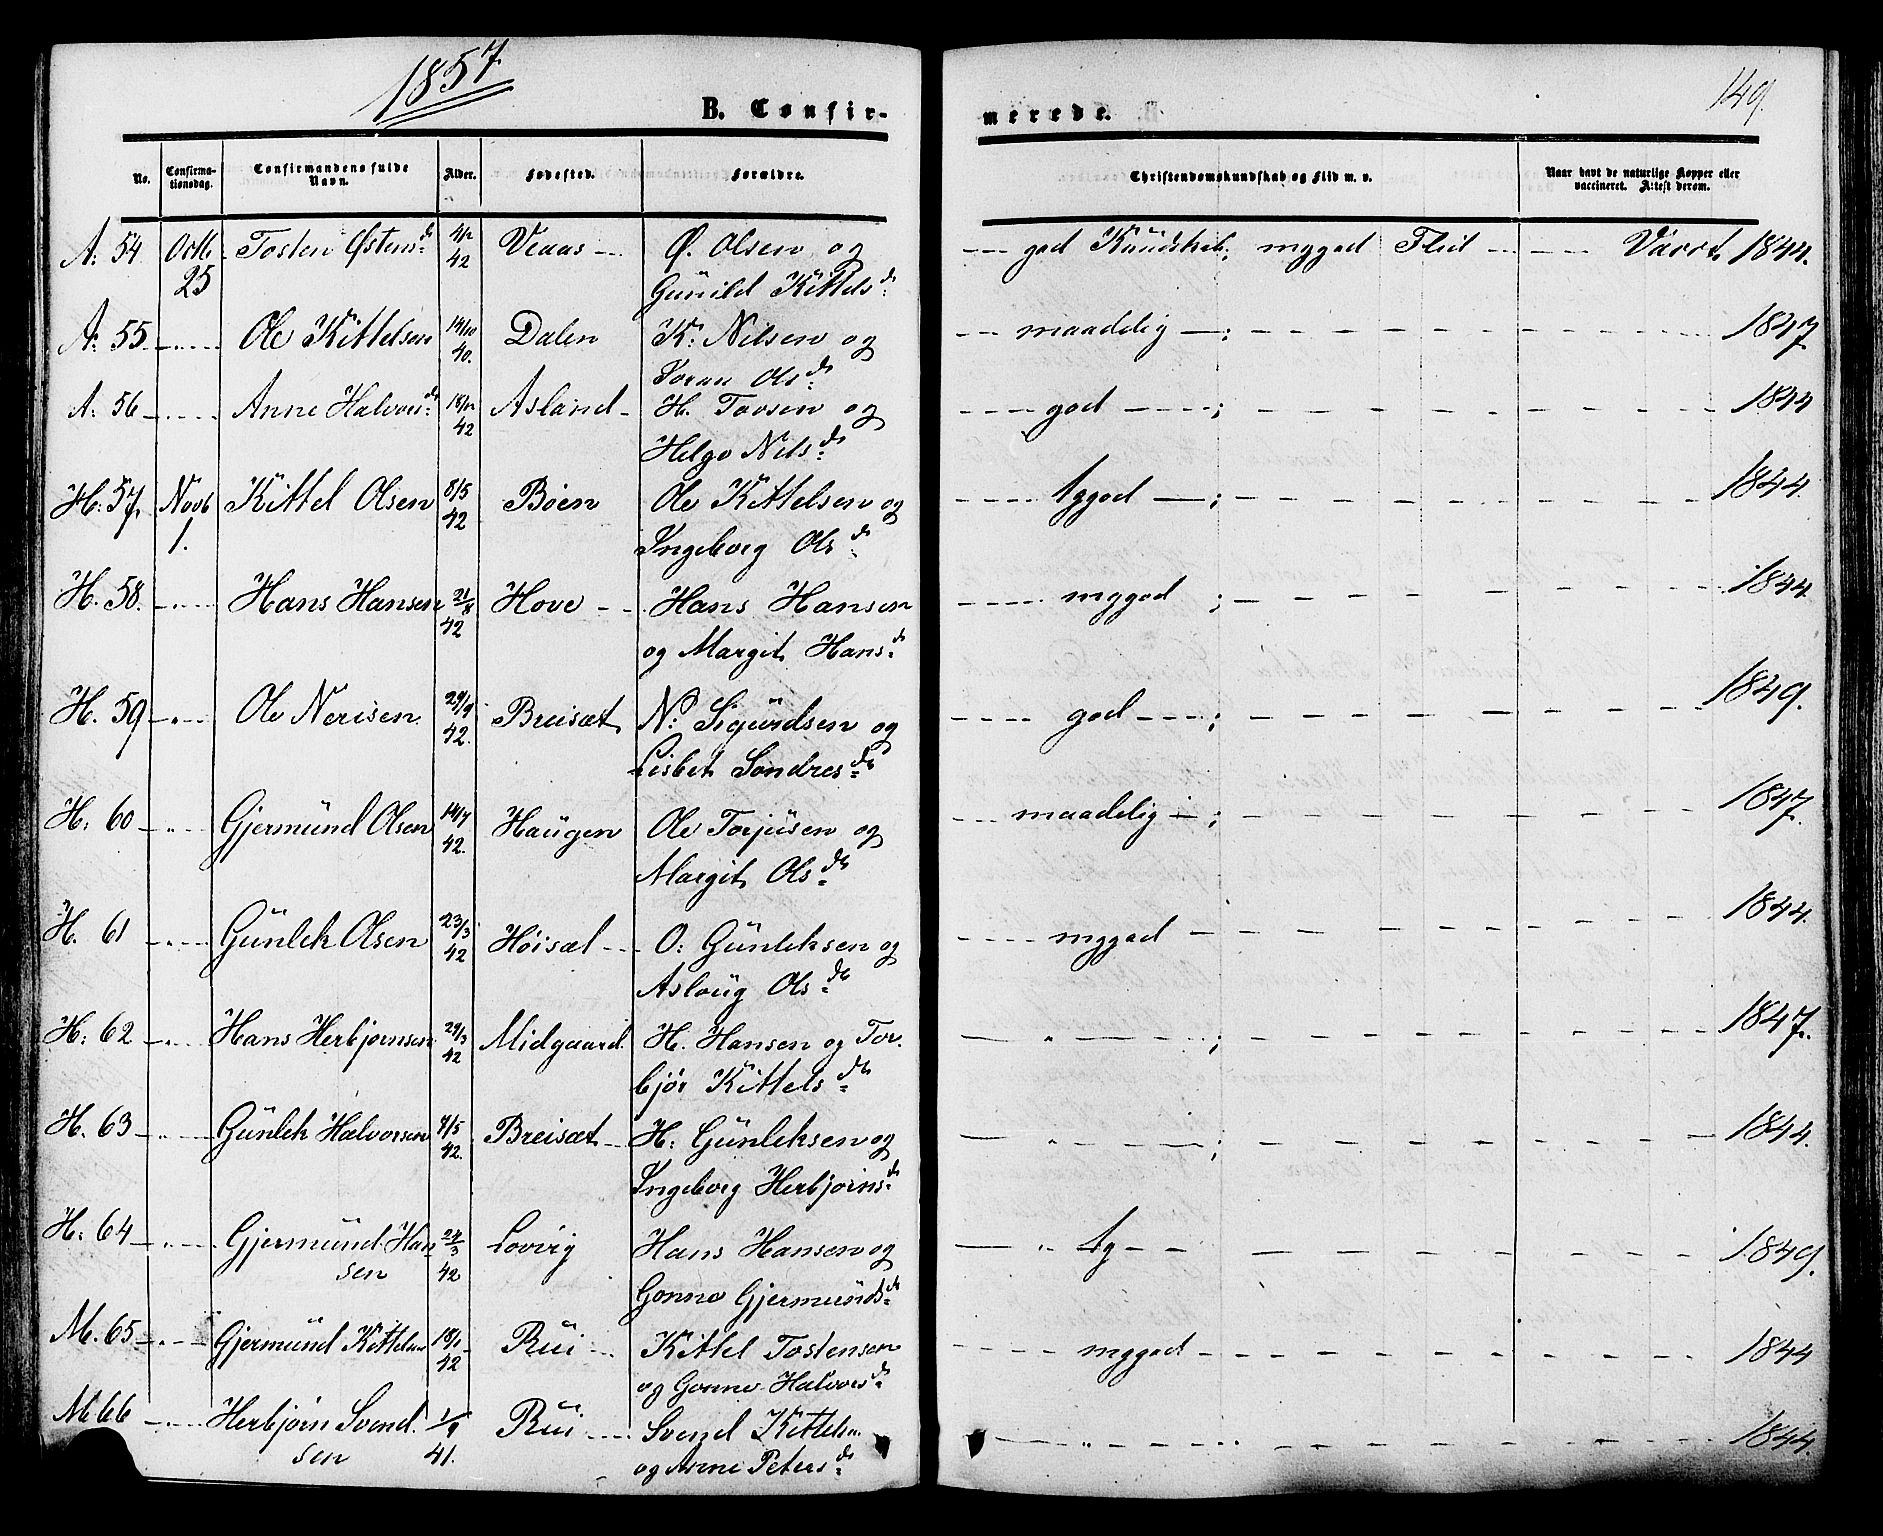 1857.
149.
B. Confir-
merede.
No.
Confirma-
tionsdag.
Confirmandens fulde
Navn.
Alder.
Fødested.
Forældre.
Christendomskundskab og Flid m. v.
Naar havt de naturlige Kopper eller
vaccineret. Attest derom.
A. 54. Octb Tosten Østens d: 4/12 Vaas Ø. Olsen og god Kundskab; mggod Flid Vacct. 1844.
25 42 Gunild Kittels d:
A. 55 Ole Kittelsen 14/10 Dalen K: Nilsen og maadelig ; 1847.
40. Ols d:
A: 56 Anne Halvors d: 18/12 Asland H. Tovsen og god ; 1844
42 Helge Nils d:
H: 57. Novb Kittel Olsen 8/5 Bøen Ole Kittelsen og tggod ; 1844.
1. 42 Ingeborg Ols d:
H. 58. Hans Hansen 21/8 Hove Hans Hansen mggod ; 1844.
42 og Margit Hans d:
H. 59 Ole Nerisen 29/9 Breisæt N: Sigurdsen og god ; 1849.
42. Lisbet Søndres d:
H: 60 Gjermund Olsen 14/7 Haugen Ole Torjusen og maadelig ; 1847.
42. Margit Ols d:
H. 61 Gunlek Olsen 23/3 Høisæl O: Gunleksen og mggod 1844.
42 Asloug Ols d:
H: 62 Hans Herbjørnsen 29/3 Midgaard. H. Hansen og Tor- " ; 1847.
42 bjør Kittels d:
H. 63 Gunlek Halvorsen 9/5 Breisæt H: Gunleksen og " ; 1844.
42. Ingeborg Herbjørns d:
H: 64 Gjermund Han 24/3 Lovvig Hans Hansen og " tg 1849.
sen 42 Gonne Gjermunds d:
M. 65 Gjermund Kittelsen 18/1 Rui Kittel Tostensen mggod 1844
42 og Gonne Halvors d:
M. 66 Herbjørn Svend 1/9 Rui Svend Kittelsen " 1844.
sen 41. og Anne Peters d: